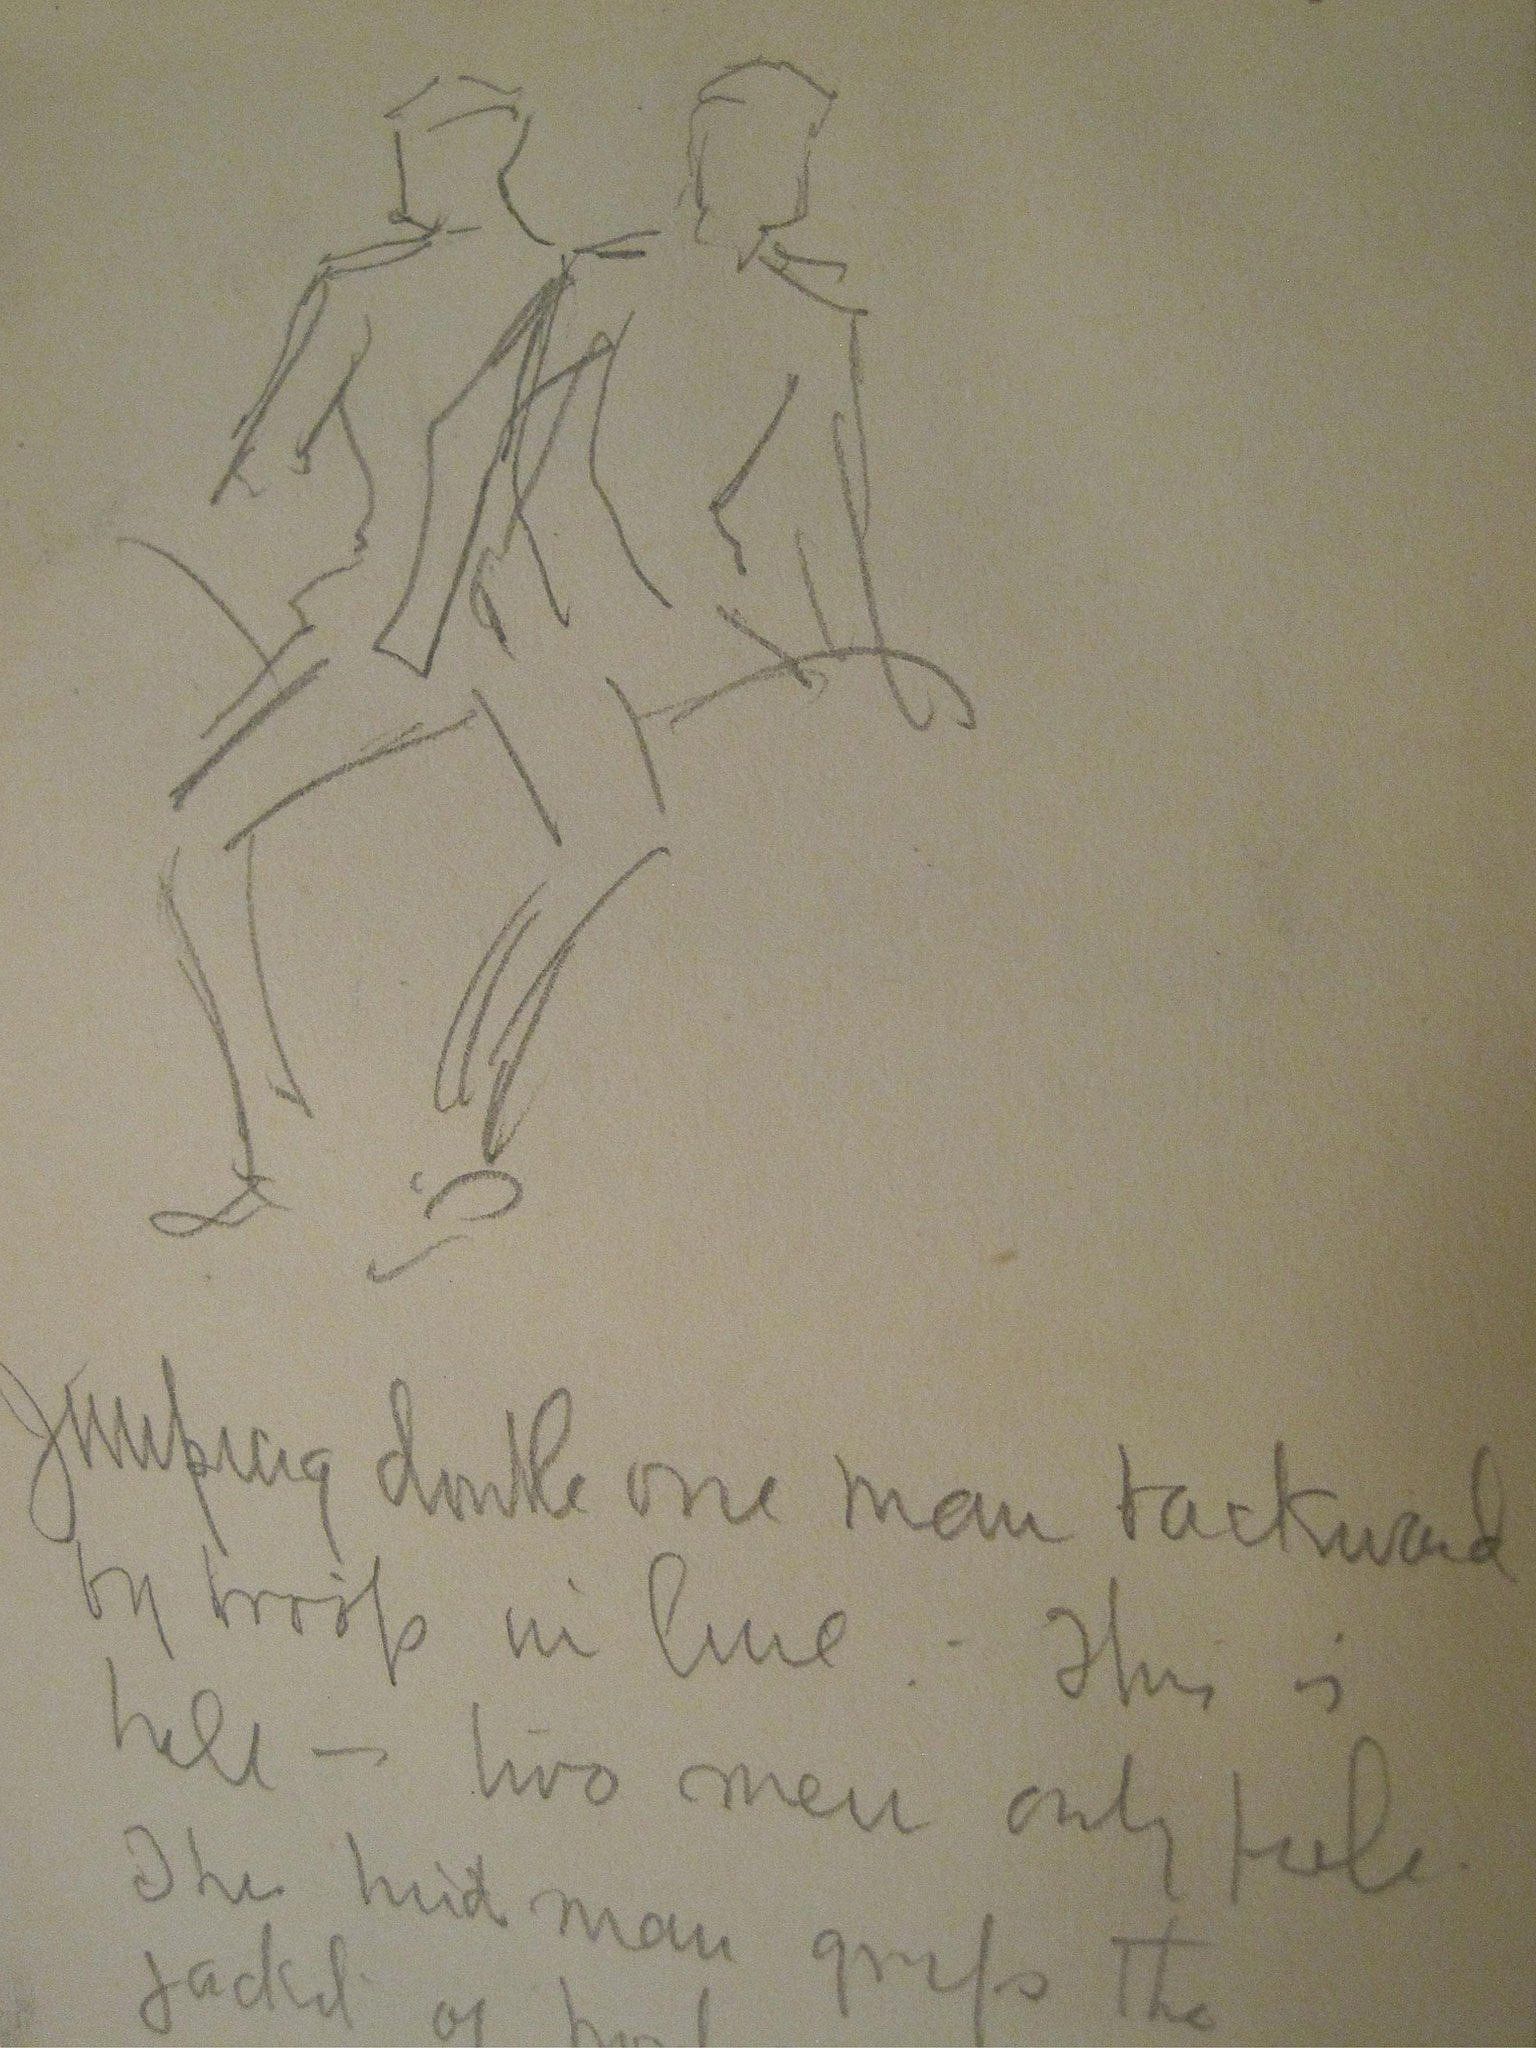 Jumping double one man backward
by troops in line. - This is
hell - two men only
The mid man grasps the
jacket of